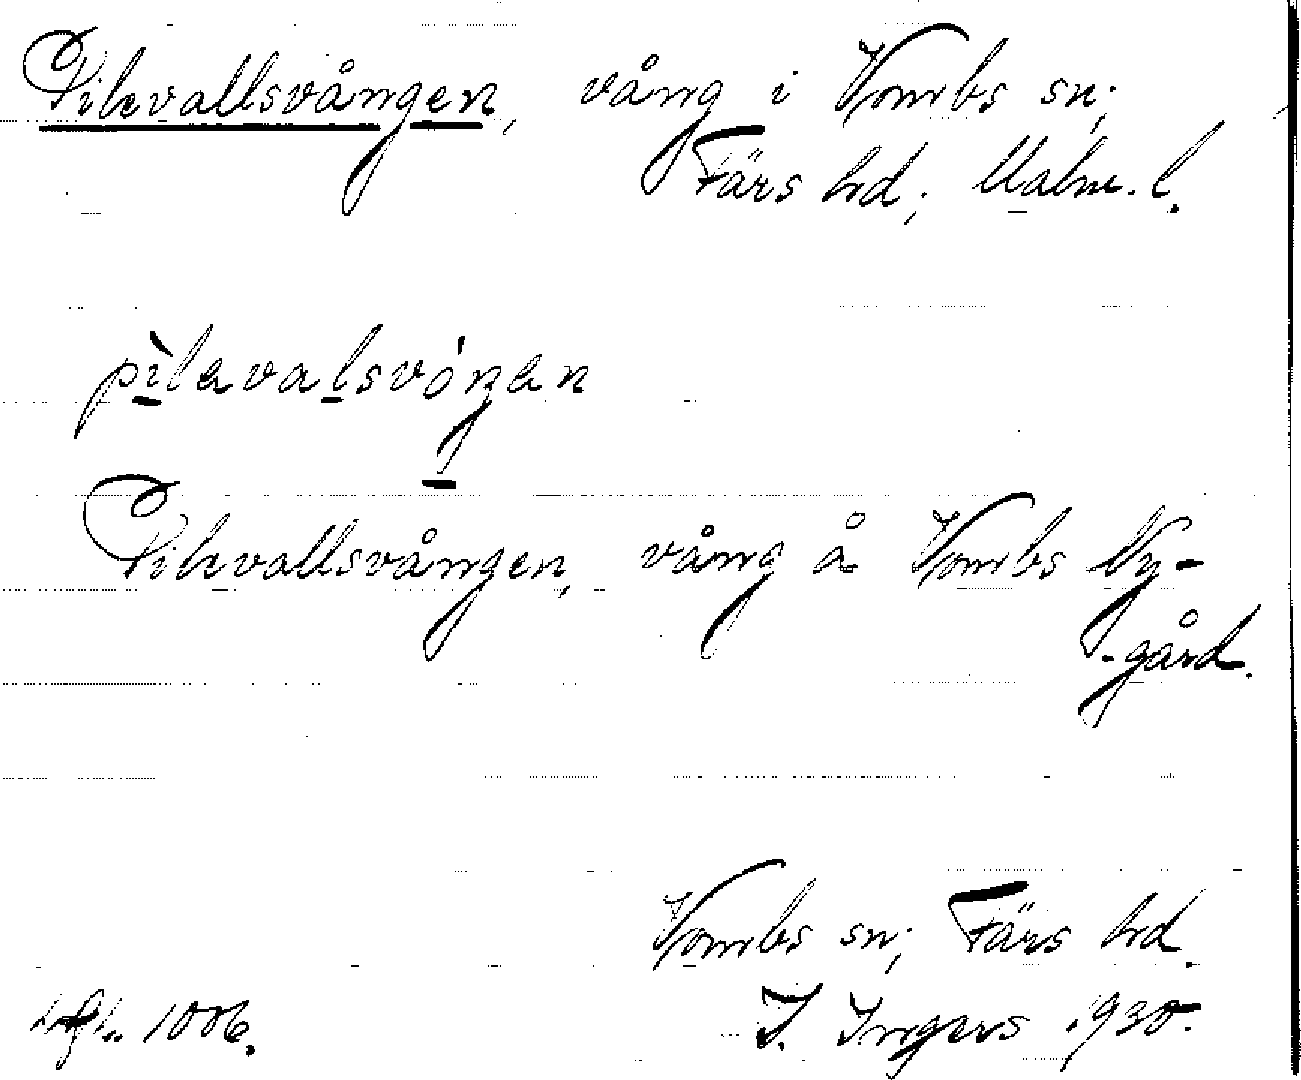 Pilevallsvången, vång i Vombs sn;
Färs hd; Malm. l.
pìlavalsvóŋan
Pilevallsvången, vång å Vombs Ny-
-gård.
Vombs sn; Färs hd.
1006. I. Ingers 1930.